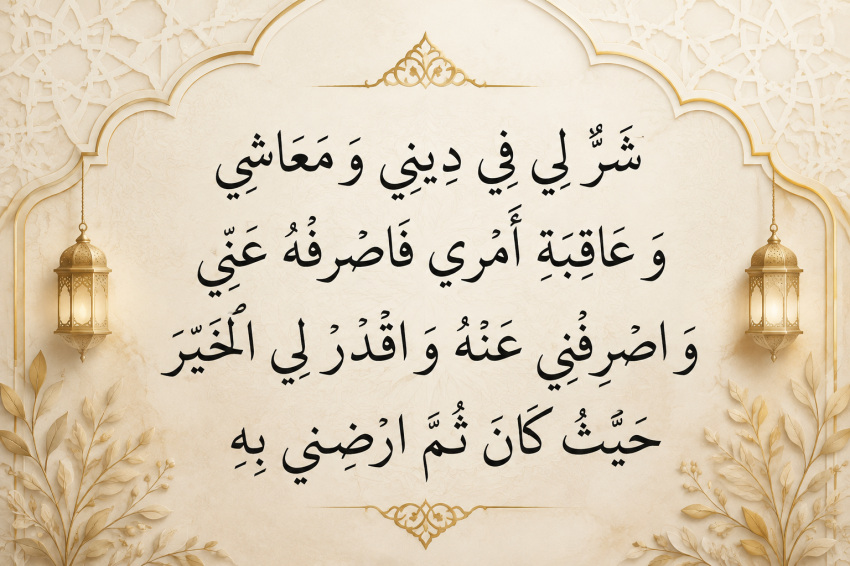 شَرٌّ لِي فِي دِينِي وَ مَعَاشِي
وَ عَاقِبَةِ أَمْرِي فَاصْرِفْهُ عَنِّي
وَ اصْرِفْنِي عَنْهُ وَ اقْدُرْ لِي الْخَيّرَ
حَيّثُ كَانَ ثُمَّ ارْضِنِي بِهِ